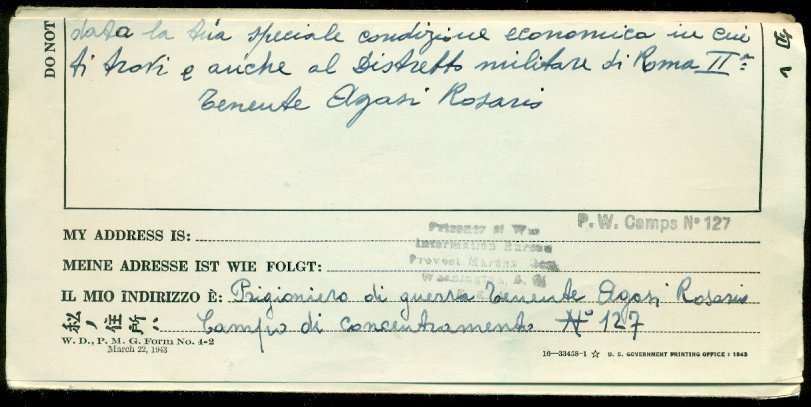 DO NOT
data la tua speciale condizione economica in cui
ti trovi e anche al Distretto militare di Roma IIº
Tenente Agasi Rosario
P.W. Camps Nº 127
Prisoner of War
Information Bureau
Provost Marshal Gen.
Washington, D.
MY ADDRESS IS:
MEINE ADRESSE IST WIE FOLGT:
IL MIO INDIRIZZO È: Prigioniero di guerra Tenente Agasi Rosario
私ノ住所: Campo di concentramento Nº 127
W. D., P. M. G. Form No. 4-2
March 22, 1943
16—33458-1 ☆ U. S. GOVERNMENT PRINTING OFFICE : 1943